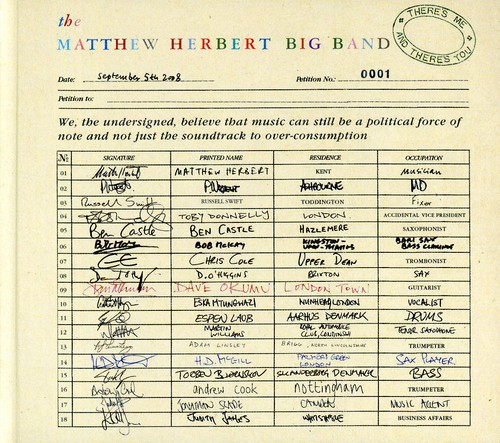 the
MATTHEW HERBERT BIG BAND
THERE'S ME AND THERE'S YOU
Date: September 5th 2008 Petition No.: 0001
Petition to:
We, the undersigned, believe that music can still be a political force of
note and not just the soundtrack to over-consumption
No. SIGNATURE PRINTED NAME RESIDENCE OCCUPATION
01 MATTHEW HERBERT KENT MUSICIAN
02 MD
03 Russell Swift RUSSELL SWIFT TODDINGTON Fixer
04 TOBY DONNELLY LONDON ACCIDENTAL VICE PRESIDENT
05 Ben Castle BEN CASTLE HAZLEMERE SAXOPHONIST
06 BOB McKAY KINGSTON-UPON-THAMES BARI SAX BASS CLARINET
07 CHRIS COLE UPPER DEAN TROMBONIST
08 D. O'HIGGINS BRIXTON SAX
09 DAVE OKUMU LONDON TOWN GUITARIST
10 ESKA MTUNGWAZI NUNHEAD, LONDON VOCALIST
11 ESPEN LAUB AARHUS DENMARK DRUMS
12 MARTIN WILLIAMS TENOR SAXOPHONE
13 ADAM LINSLEY BRIGG, NORTH LINCOLNSHIRE TRUMPETER
14 H.D. McGILL PALMERS GREEN LONDON SAX PLAYER
15 TORBEN SKANDERBORG DENMARK BASS
16 andrew cook nottingham TRUMPETER
17 JONATHAN SLADE CAMDEN MUSIC AGENT
18 JUDITH WHITSTABLE BUSINESS AFFAIRS